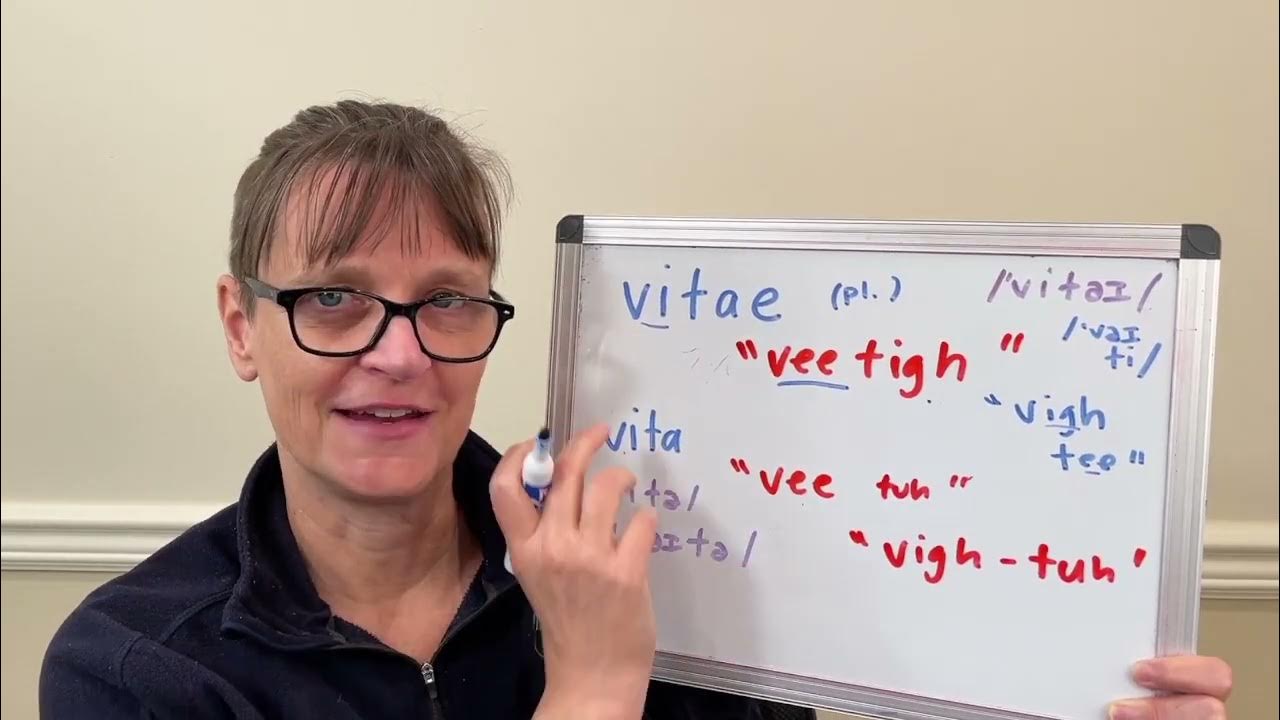 vitae (pl.) /'vitəɪ/
/'vəɪ
ti/
"veetigh"
"vigh
tee"
vita
"vee tuh"
itə/
əɪtə/
"vigh-tuh'